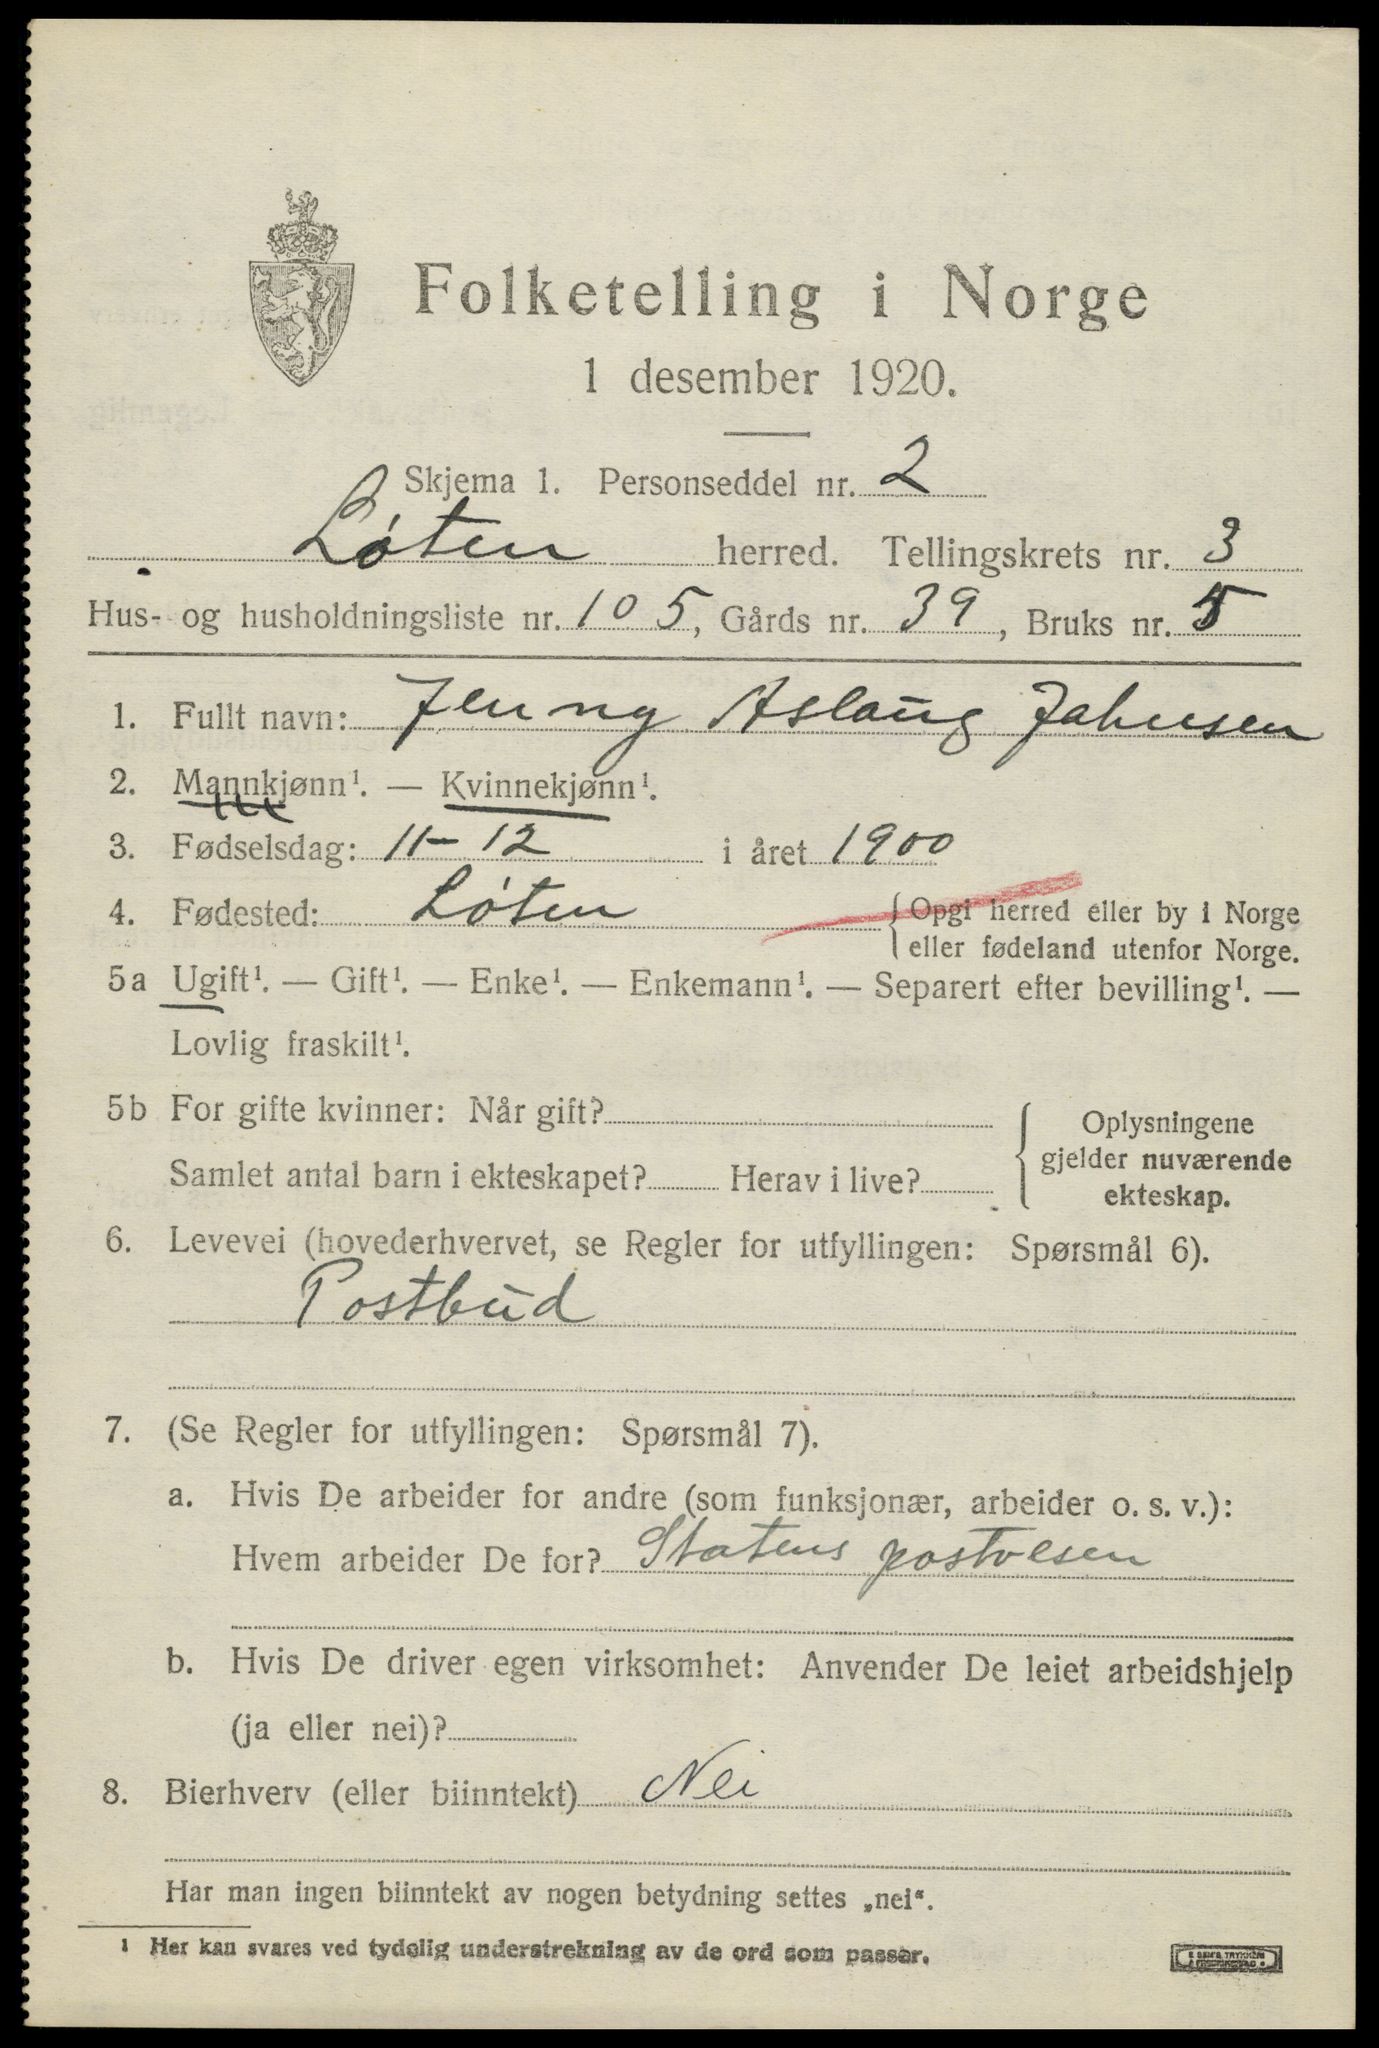 Folketelling i Norge
1 desember 1920.
Skjema 1. Personseddel nr. 2
Løten herred. Tellingskrets nr. 3
Hus- og husholdningsliste nr. 105, Gårds nr. 39, Bruks nr. 5
1. Fullt navn: Jenny Aslaug Johnsen
2. Mannkjønn¹. — Kvinnekjønn¹.
3. Fødselsdag: 11-12 i året 1900
4. Fødested: Løten { Opgi herred eller by i Norge
eller fødeland utenfor Norge.
5a Ugift¹. — Gift¹. — Enke¹. — Enkemann¹. — Separert efter bevilling¹. —
Lovlig fraskilt¹.
5b For gifte kvinner: Når gift?
Samlet antal barn i ekteskapet? Herav i live?
Oplysningene
gjelder nuværende
ekteskap.
6. Levevei (hovederhvervet, se Regler for utfyllingen: Spørsmål 6).
Postbud
7. (Se Regler for utfyllingen: Spørsmål 7).
a. Hvis De arbeider for andre (som funksjonær, arbeider o. s. v.):
Hvem arbeider De for? Statens postvesen
b. Hvis De driver egen virksomhet: Anvender De leiet arbeidshjelp
(ja eller nei)?
8. Bierhverv (eller biinntekt) Nei
Har man ingen biinntekt av nogen betydning settes „nei“.
¹ Her kan svares ved tydelig understrekning av de ord som passer.